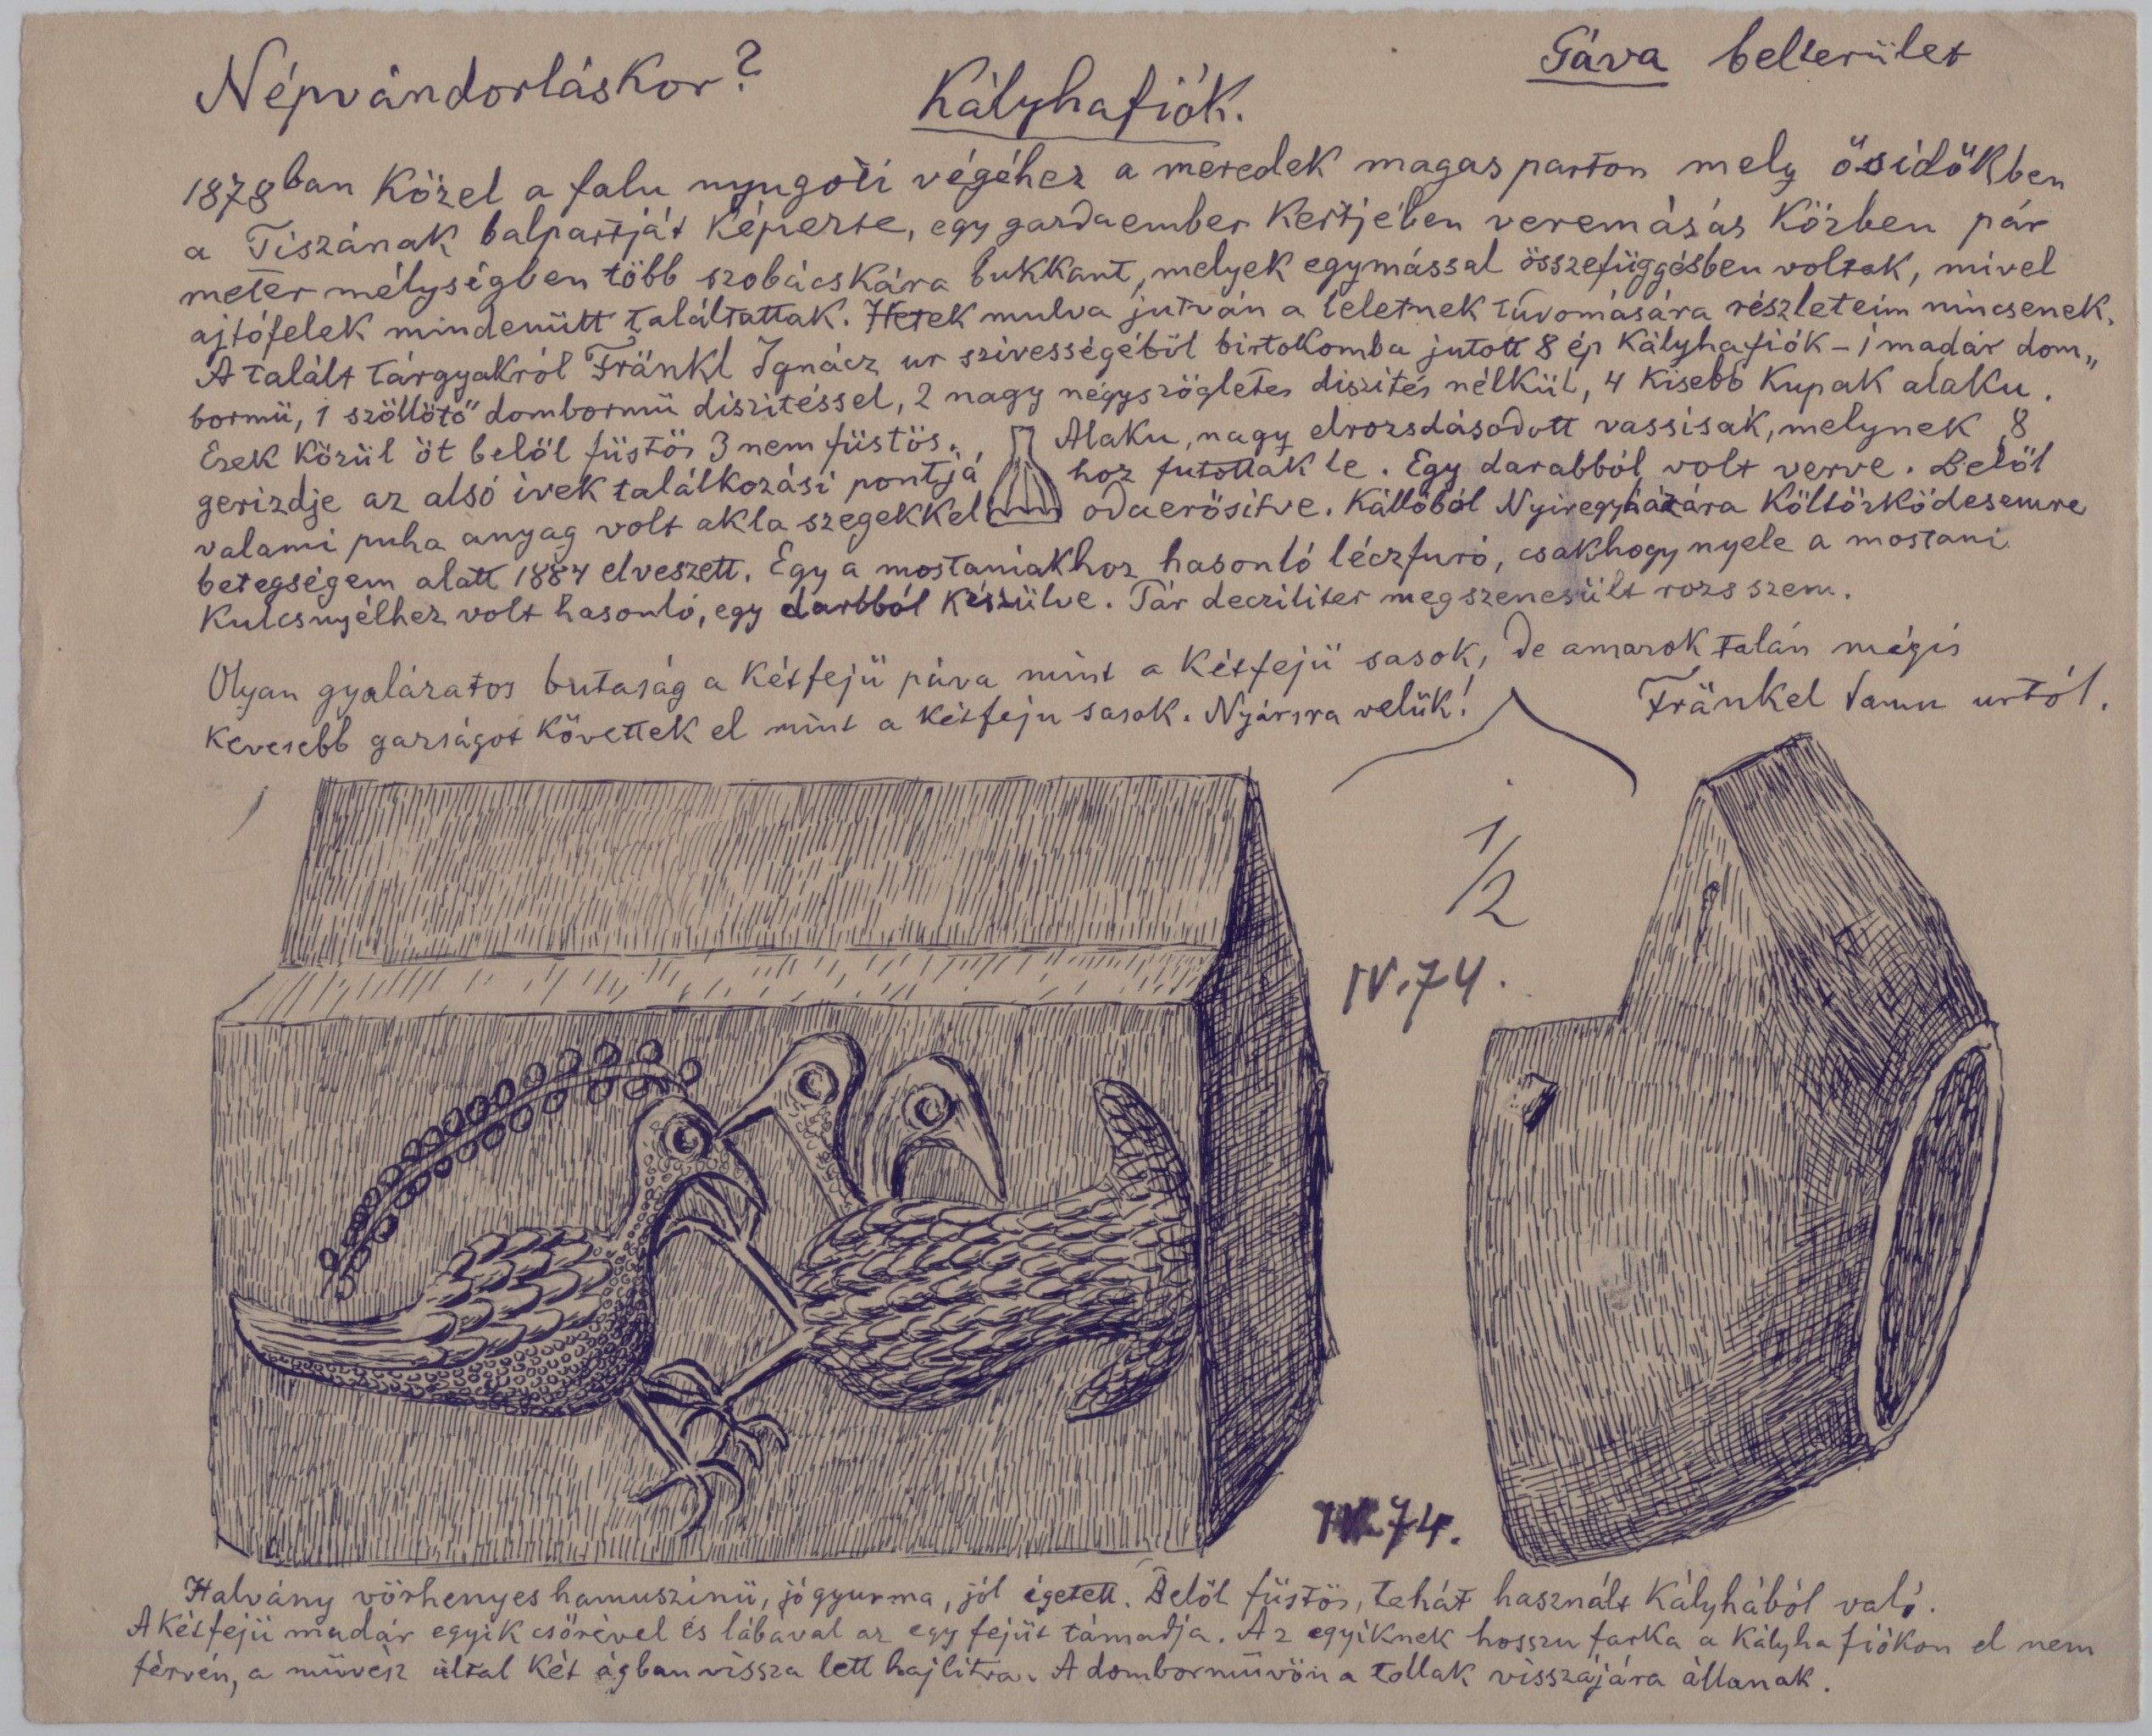 Népvándorláskor?
Kályhafiók.
Gáva belterület
1878ban közel a falu nyugoti végéhez a meredek magasparton mely ősidőkben
a Tiszának balpartját képezte, egy gazdaember kertjében veremásás közben pár
meter mélységben több szobácskára bukkant, melyek egymással összefüggésben voltak, mivel
ajtófelek mindenütt találtattak. Hetek mulva jutván a leletnek tudomására részleteim nincsenek.
A talált tárgyakról Fränkl Ignácz ur szivességéből birtokomba jutott 8 ép kályhafiók – 1 madár dom„
bormü, 1 szöllőtő" dombormü diszitéssel, 2 nagy négyszögletes diszités nélkül, 4 kisebb kupak alaku.
Ezek közül öt belől füstös 3 nem füstös. Alaku, nagy elrozsdásodott vassisak, melynek 8
gerizdje az alsó ivek találkozási pontjá hoz futottak le. Egy darabból volt verve. Belől
valami puha anyag volt akla szegekkel odaerősitve. Kállóból Nyiregyházára költözködesemre
betegségem alatt 1884 elveszett. Egy a mostaniakhoz hasonló léczfuró, csakhogy nyele a mostani
kulcsnyélhez volt hasonló, egy darbból készülve. Pár decziliter megszenesült rozs szem.
Olyan gyalázatos butaság a kétfejü páva mint a kétfejü sasok, de amazok talán mégis
kevesebb gazságot követtek el mint a kétfeju sasok. Nyársra velük!
Fränkel urtól.
1/2
IV.74.
IV.74.
Halvány vörhenyes hamuszinü, jó gyurma, jól égetett. Belől füstös, tehát használt kályhából való.
A kétfejü madár egyik csőrével és lábával az egy fejüt támadja. Az egyiknek hosszu farka a kályha fiókon el nem
férvén, a müvész által két ágban vissza lett hajlitva. A domborművön a tollak visszájára állanak.